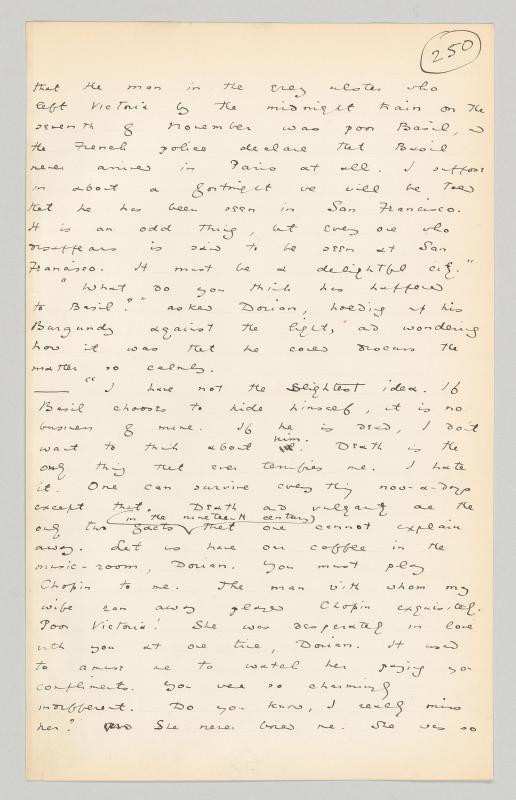 250
that the man in the grey ulster who
left Victoria by the midnight train on the
seventh of November was poor Basil, and
the French police declare that Basil
never arrived in Paris at all. I suppose
in about a fortnight we will be told
that he has been seen in San Francisco.
It is an odd thing, but every one who
disappears is said to be seen at San
Francisco. It must be a delightful city."
"What do you think has happened
to Basil?" asked Dorian, holding up his
Burgundy against the light, and wondering
how it was that he could discuss the
matter so calmly.
"I have not the slightest idea. If
Basil chooses to hide himself, it is no
business of mine. If he is dead, I don't
want to think about him. Death is the
only thing that ever terrifies me. I hate
it. One can survive everything now-a-days
except that. Death and vulgarity are the
only two facts in the nineteenth century that one cannot explain
away. Let us have our coffee in the
music-room, Dorian. You must play
Chopin to me. The man with whom my
wife ran away played Chopin exquisitely.
Poor Victoria! She was desperately in love
with you at one time, Dorian. It used
to amuse me to watch her paying you
compliments. You were so charmingly
indifferent. Do you know, I really miss
her? She never bored me. She was so